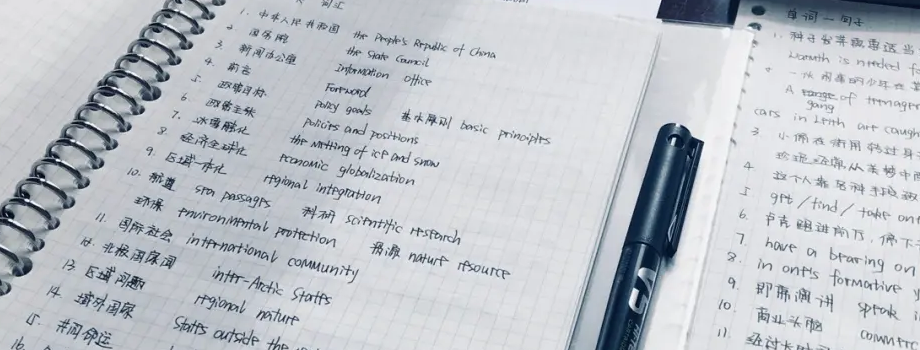 词汇
1. 中华人民共和国 the People's Republic of China
2. 国务院 the State Council
3. 新闻办公室 Information Office
4. 前言 Foreword
5. 政策目标 policy goals 基本原则 basic principles
6. 政策主张 policies and positions
7. 冰雪融化 the melting of ice and snow
8. 经济全球化 economic globalization
9. 区域一体化 regional integration
10. 航道 sea passages 科研 scientific research
环保 environmental protection 资源 nature resource
11. 国际社会 international community
12. 北极国家间 inter-Arctic States
13. 区域问题 regional nature
14. 域外国家 States outside the
15. 共同命运
16.
V5
单词一句子
1. 种子发芽
Warmth is needed fo
A gang of teenage
cars in Leith are caugh
3.
4.
5 get / find / take on
6.
7. have a bearing on
8. in one's formative y
9. 即席演讲 speak i
10. 商业头脑 comme
11. 经过长时间